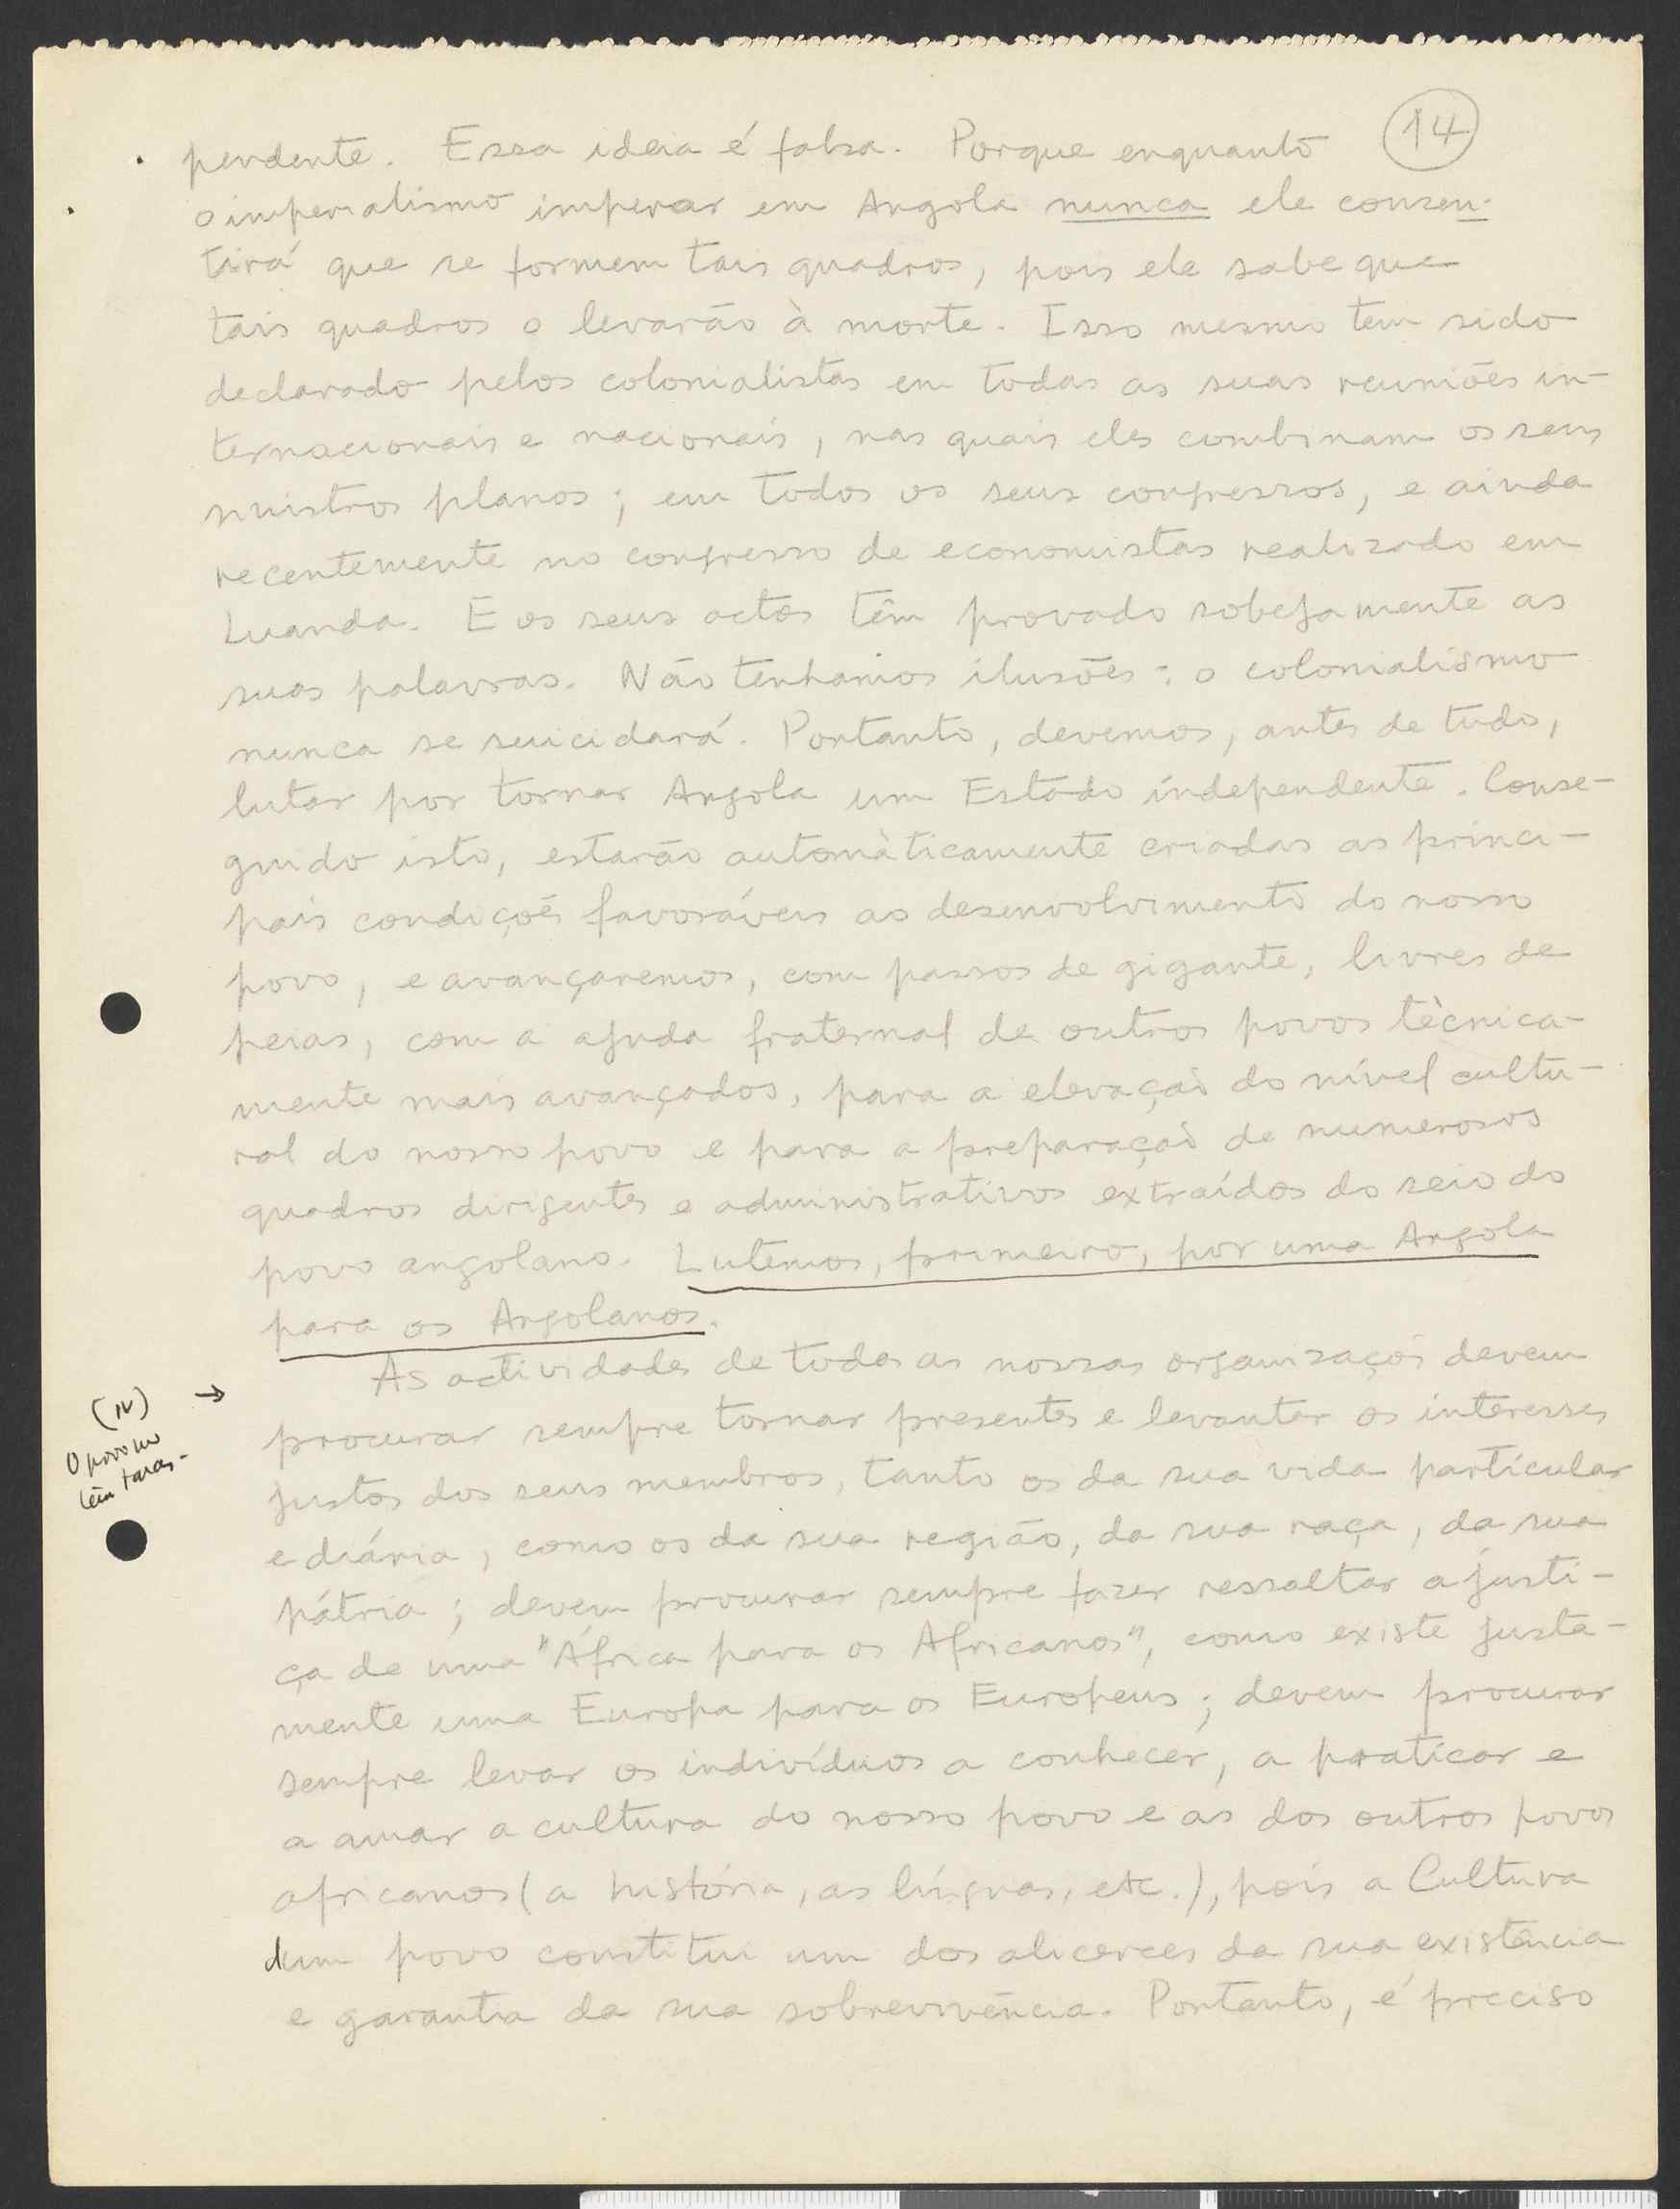 14
pendente. Essa ideia é falsa. Porque enquanto
o imperialismo imperar em Angola nunca ele consen-
tirá que se formem tais quadros, pois ele sabe que
tais quadros o levarão à morte. Isso mesmo tem sido
declarado pelos colonialistas em todas as suas reuniões in-
ternacionais e nacionais, nas quais eles combinam os seus
sinistros planos; em todos os seus congressos, e ainda
recentemente no congresso de economistas realizado em
Luanda. E os seus actos têm provado sobejamente as
suas palavras. Não tenhamos ilusões: o colonialismo
nunca se suicidará. Portanto, devemos, antes de tudo,
lutar por tornar Angola um Estado independente. Conse-
guido isto, estarão automàticamente criadas as princi-
pais condições favoráveis ao desenvolvimento do nosso
povo, e avançaremos, com passos de gigante, livres de
peias, com a ajuda fraternal de outros povos tècnica-
mente mais avançados, para a elevação do nível cultu-
ral do nosso povo e para a preparação de numerosos
quadros dirigentes e administrativos extraídos do seio do
povo angolano. Lutemos, primeiro, por uma Angola
para os Angolanos.
As actividades de todas as nossas organizações devem
(IV) →
procurar sempre tornar presentes e levantar os interesses
O povo
justos dos seus membros, tanto os da sua vida particular
e diária, como os da sua região, da sua raça, da sua
pátria; devem procurar sempre fazer ressaltar a justi-
ça de uma "África para os Africanos", como existe justa-
mente uma Europa para os Europeus; devem procurar
sempre levar os indivíduos a conhecer, a praticar e
a amar a cultura do nosso povo e as dos outros povos
africanos (a história, as línguas, etc.), pois a Cultura
dum povo constitui um dos alicerces da sua existência
e garantia da sua sobrevivência. Portanto, é preciso